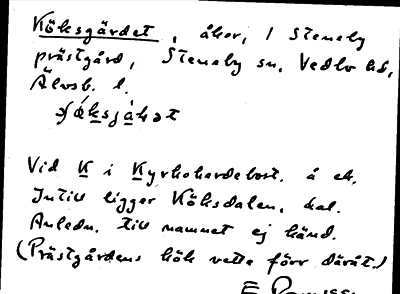 Köksgärdet, åker, 1 Steneby
prästgård, Steneby sn, Vedbo hd,
Älvsb. l.
Vid K i Kyrkoherdebost. å ek.
Intill ligger Köksdalen, hal.
Anledn. till namnet ej känd.
(Prästgårdens kök vette förr däråt.)
E